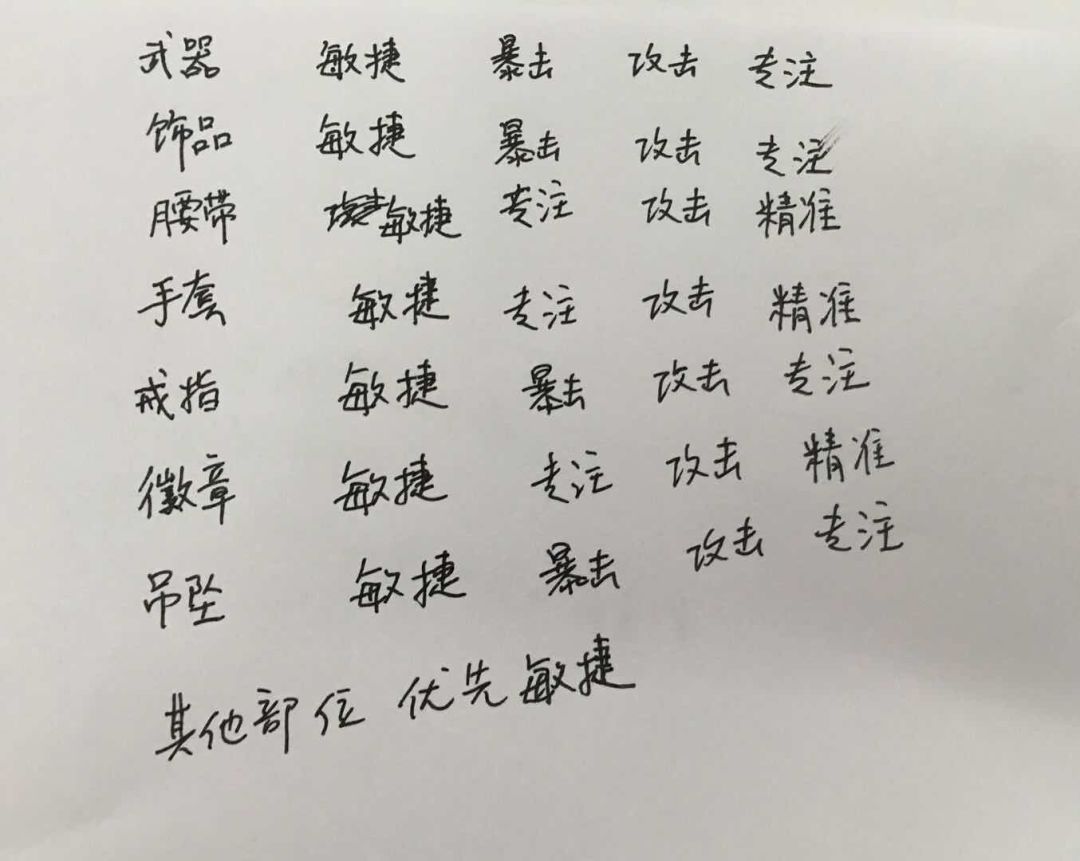 武器 敏捷 暴击 攻击 专注
饰品 敏捷 暴击 攻击 专注
腰带 敏捷 专注 攻击 精准
手套 敏捷 专注 攻击 精准
戒指 敏捷 暴击 攻击 专注
徽章 敏捷 专注 攻击 精准
吊坠 敏捷 暴击 攻击 专注
其他部位 优先敏捷